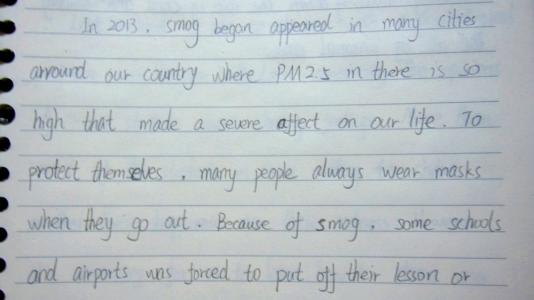 In 2013, smog began appeared in many cities
arround our country where PM2.5 in there is so
high that made a severe affect on our life. To
protect themselves, many people always wear masks
when they go out. Because of smog, some schools
and airports was forced to put off their lesson or